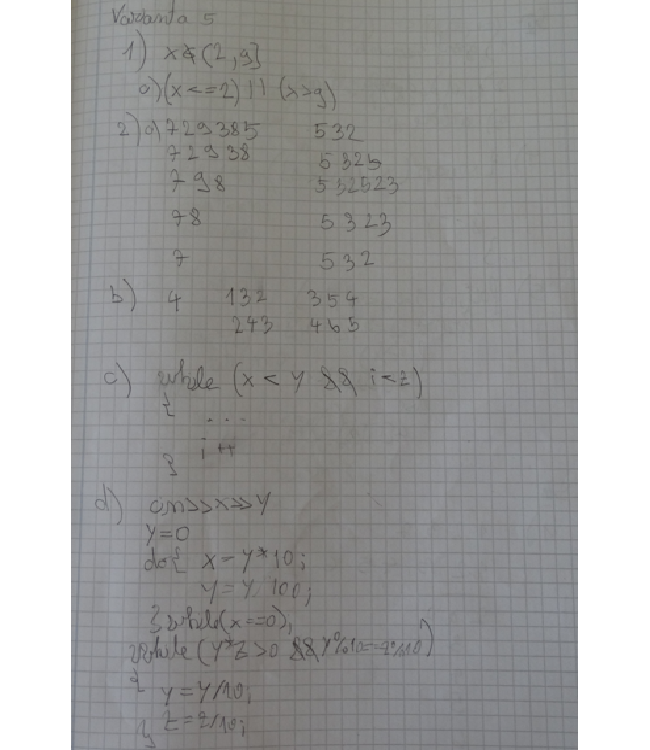 Varianta 5
1) x∉(2,9]
a)(x<=2)||(x>9)
2)a)729385 532
72938 5325
798 532523
78 5323
7 532
b) 4 132 354
243 465
c) while (x < y && i<z)
{ ...
i++
}
d) cin>>x>>y
y=0
do{ x=y*10;
y=y/100;
}while(x==0);
while(y*z>0 &&y%10==z%10)
{ y=y/10;
z=z/10;
}